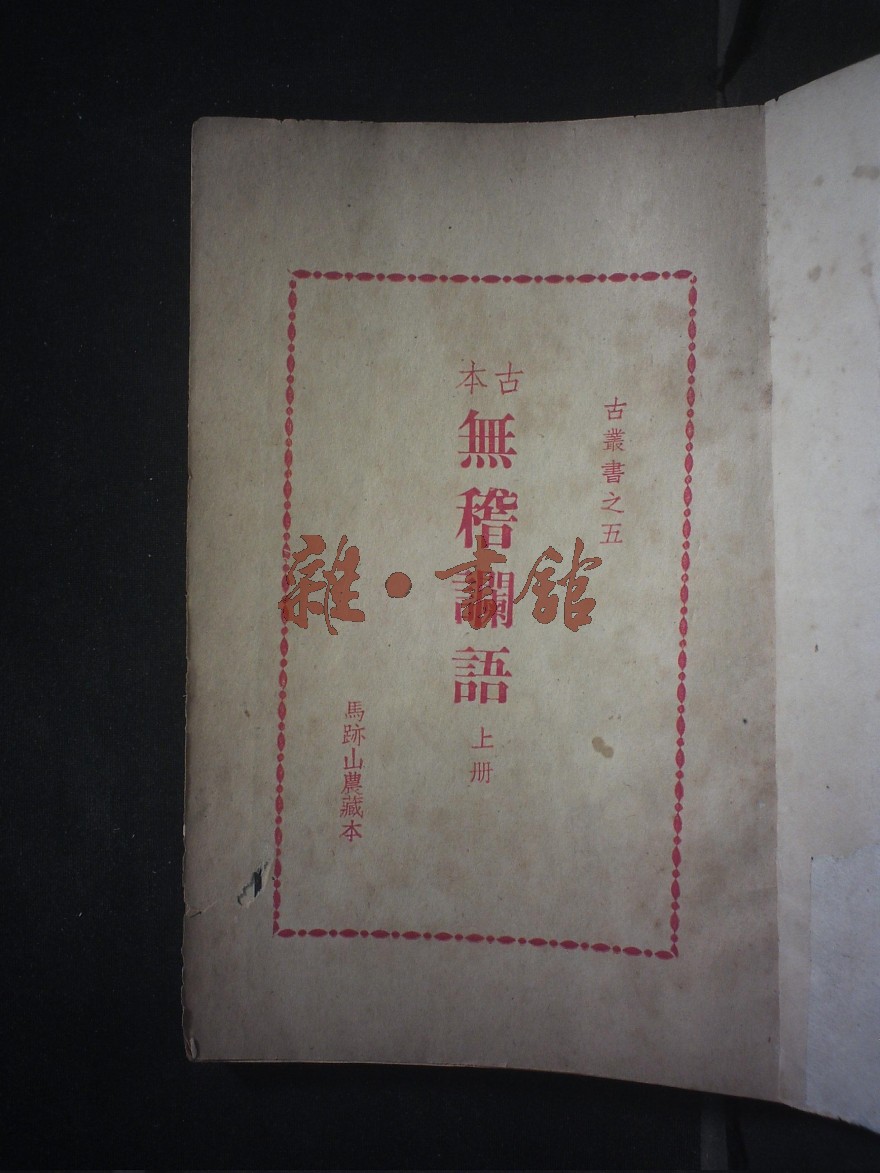 古叢書之五
古本
無稽讕語
上册
馬跡山農藏本
雜·書館